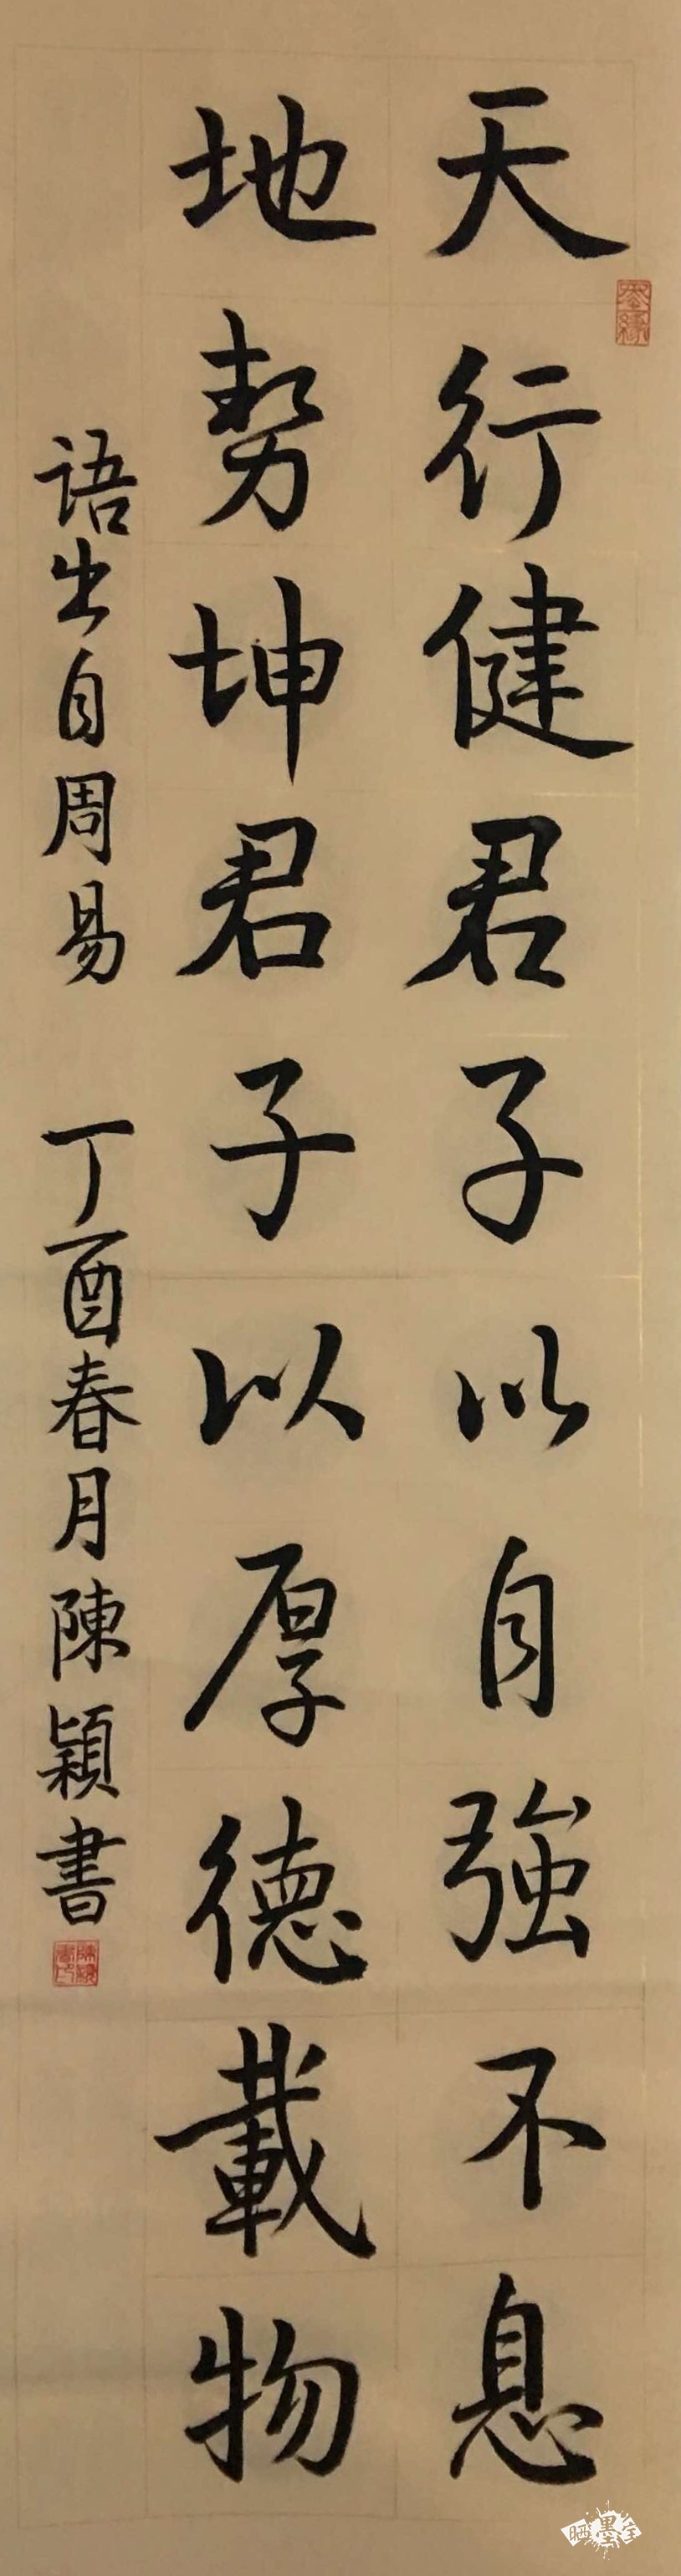 天行健君子以自強不息
地势坤君子以厚德載物
语出自周易 丁酉春月陳穎書
晒墨宝